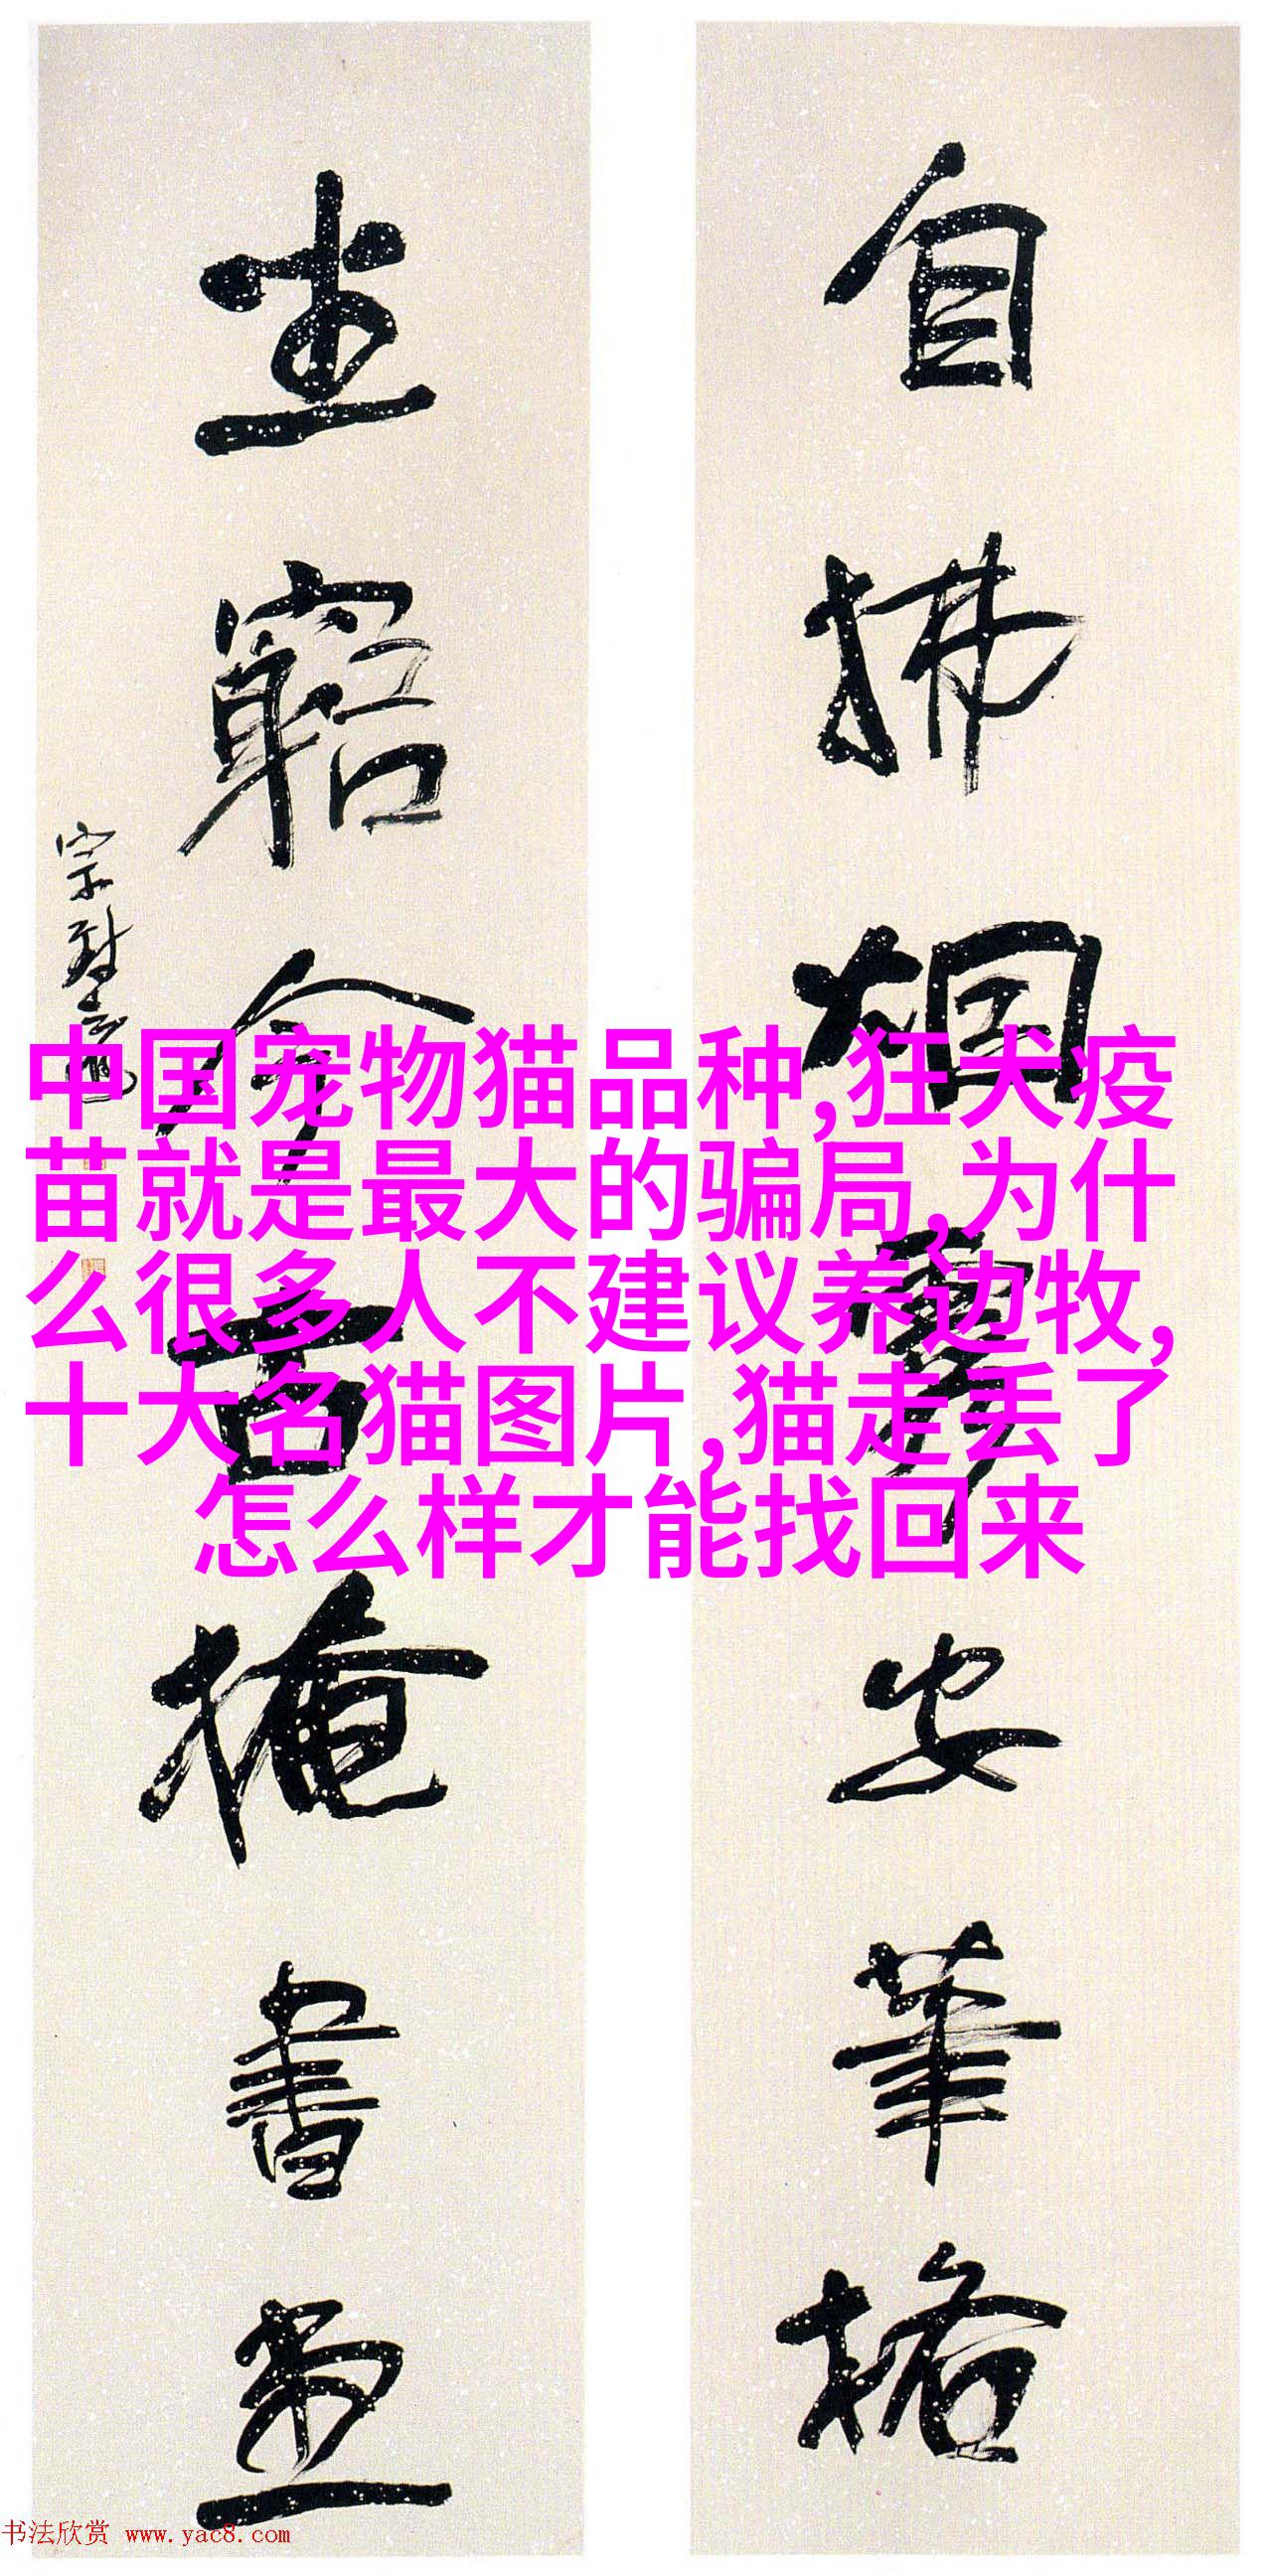 自拂烟霞安笔格
坐穷今古掩書畫
中国宠物猫品种,狂犬疫
苗就是最大的骗局,为什
么很多人不建议养边牧,
十大名猫图片,猫走丢了
怎么样才能找回来
书法欣赏 www.yac8.com